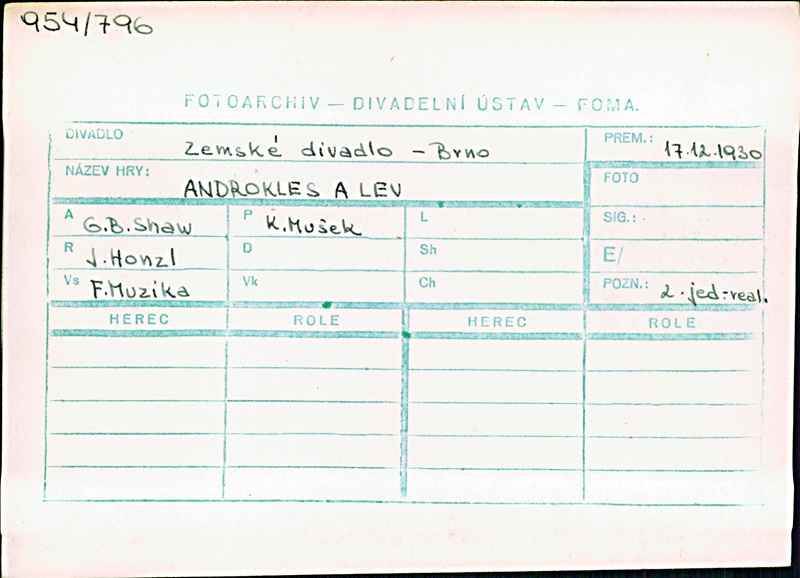 954/796
FOTOARCHIV — DIVADELNÍ ÚSTAV — FOMA.
DIVADLO Zemské divadlo - Brno PREM.: 17.12.1930
NÁZEV HRY: ANDROKLES A LEV FOTO
A G.B.Shaw P K.Mušek L SIG.:
R J.Honzl D Sh E/
Vs F.Muzika Vk Ch POZN.: 2.jed-real.
HEREC ROLE HEREC ROLE